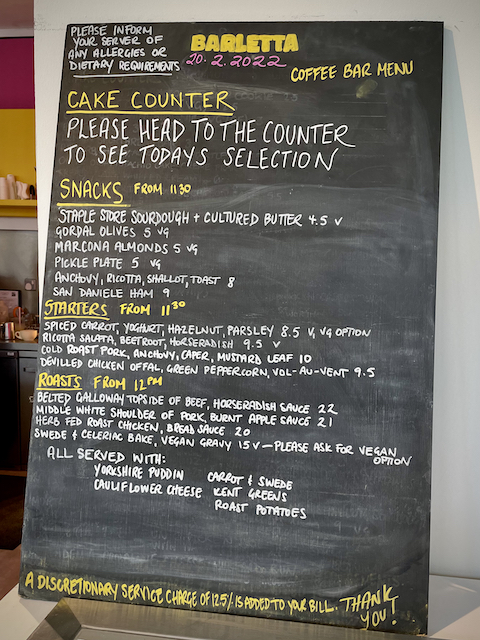 PLEASE INFORM
YOUR SERVER OF
ANY ALLERGIES OR
DIETARY REQUIREMENTS
BARLETTA
20.2.2022
COFFEE BAR MENU
CAKE COUNTER
PLEASE HEAD TO THE COUNTER
TO SEE TODAYS SELECTION
SNACKS FROM 11 30
STAPLE STORE SOURDOUGH + CULTURED BUTTER 4.5 V
GORDAL OLIVES 5 VG
MARCONA ALMONDS 5 VG
PICKLE PLATE 5 VG
ANCHOVY, RICOTTA, SHALLOT, TOAST 8
SAN DANIELE HAM 9
STARTERS FROM 11 30
SPICED CARROT, YOGHURT, HAZELNUT, PARSLEY 8.5 V, VG OPTION
RICOTTA SALATA, BEETROOT, HORSERADISH 9.5 V
COLD ROAST PORK, ANCHOVY, CAPER, MUSTARD LEAF 10
DEVILLED CHICKEN OFFAL, GREEN PEPPERCORN, VOL-AU-VENT 9.5
ROASTS FROM 12PM
BELTED GALLOWAY TOPSIDE OF BEEF, HORSERADISH SAUCE 22
MIDDLE WHITE SHOULDER OF PORK, BURNT APPLE SAUCE 21
HERB FED ROAST CHICKEN, BREAD SAUCE 20
SWEDE & CELERIAC BAKE, VEGAN GRAVY 15 V — PLEASE ASK FOR VEGAN
OPTION
ALL SERVED WITH:
YORKSHIRE PUDDIN
CAULIFLOWER CHEESE
CARROT & SWEDE
KENT GREENS
ROAST POTATOES
A DISCRETIONARY SERVICE CHARGE OF 12.5% IS ADDED TO YOUR BILL. THANK
YOU!